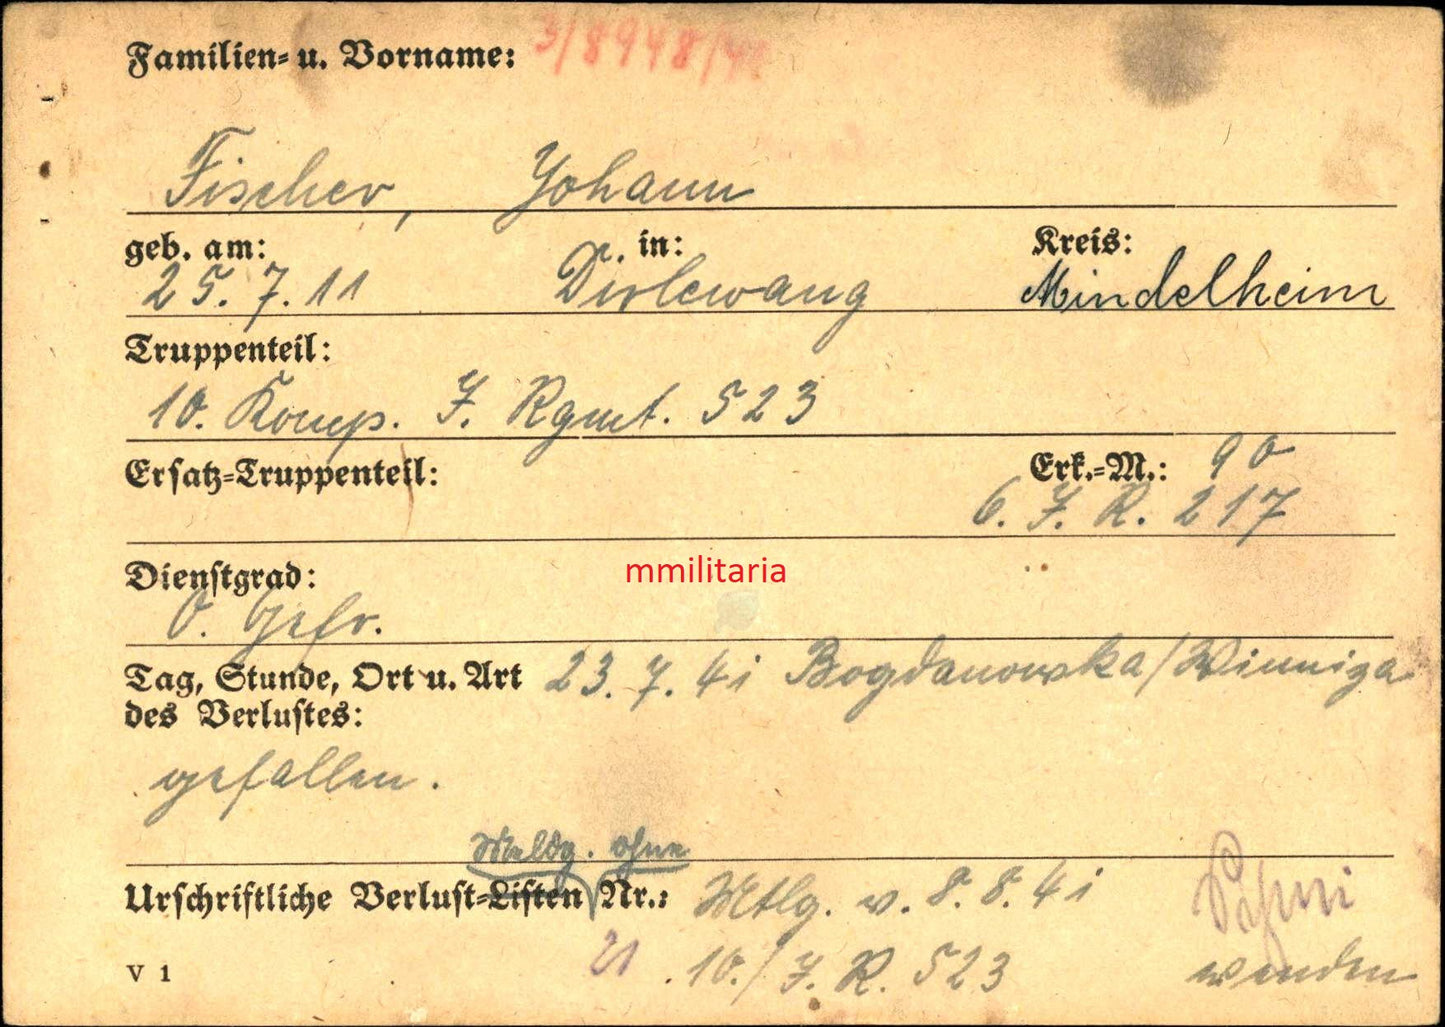 Familien- u. Vorname: 3/8948/41
Fischer, Johann
geb. am: in: Kreis:
25. 7. 11 Dirlewang Mindelheim
Truppenteil:
10. Komp. J. Rgmt. 523
Ersatz-Truppenteil: Erk.-M.: 90
6. J. R. 217
mmilitaria
Dienstgrad:
O. Gefr.
Tag, Stunde, Ort u. Art 23. 7. 41 Bogdanowska/Winniza
des Verlustes:
gefallen.
Meldg. ohne
Urschriftliche Verlust-Listen Nr.: Mtlg. v. 8. 8. 41
V 1 21 . 10./J. R. 523 wenden